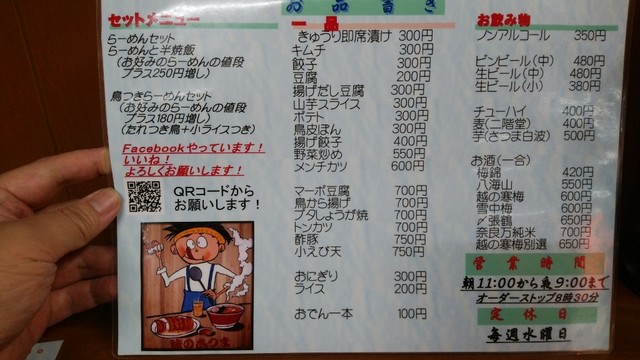 お品書き
セットメニュー
らーめんセット
らーめんと半焼飯
(お好みのらーめんの値段
プラス250円増し)
鳥つきらーめんセット
(お好みのらーめんの値段
プラス180円増し)
(たれつき鳥+小ライスつき)
Facebookやっています!
いいね!
よろしくお願いします!
QRコードから
お願いします!
一品
きゅうり即席漬け 300円
キムチ 300円
餃子 300円
豆腐 200円
揚げだし豆腐 300円
山芋スライス 300円
ポテト 300円
鳥皮ぽん 300円
揚げ餃子 400円
野菜炒め 550円
メンチカツ 600円
マーボ豆腐 700円
鳥から揚げ 700円
ブタしょうが焼 700円
トンカツ 700円
酢豚 750円
小えび天 750円
おにぎり 300円
ライス 200円
おでん一本 100円
お飲み物
ノンアルコール 350円
ビンビール(中) 480円
生ビール(中) 480円
生ビール(小) 380円
チューハイ 400円
麦(二階堂) 400円
芋(さつま白波) 500円
お酒(一合)
梅錦 420円
八海山 550円
越の寒梅 600円
雪中梅 600円
〆張鶴 650円
奈良万純米 700円
越の寒梅別選 650円
営業時間
朝11:00から夜9:00まで
オーダーストップ8時30分
定休日
毎週水曜日